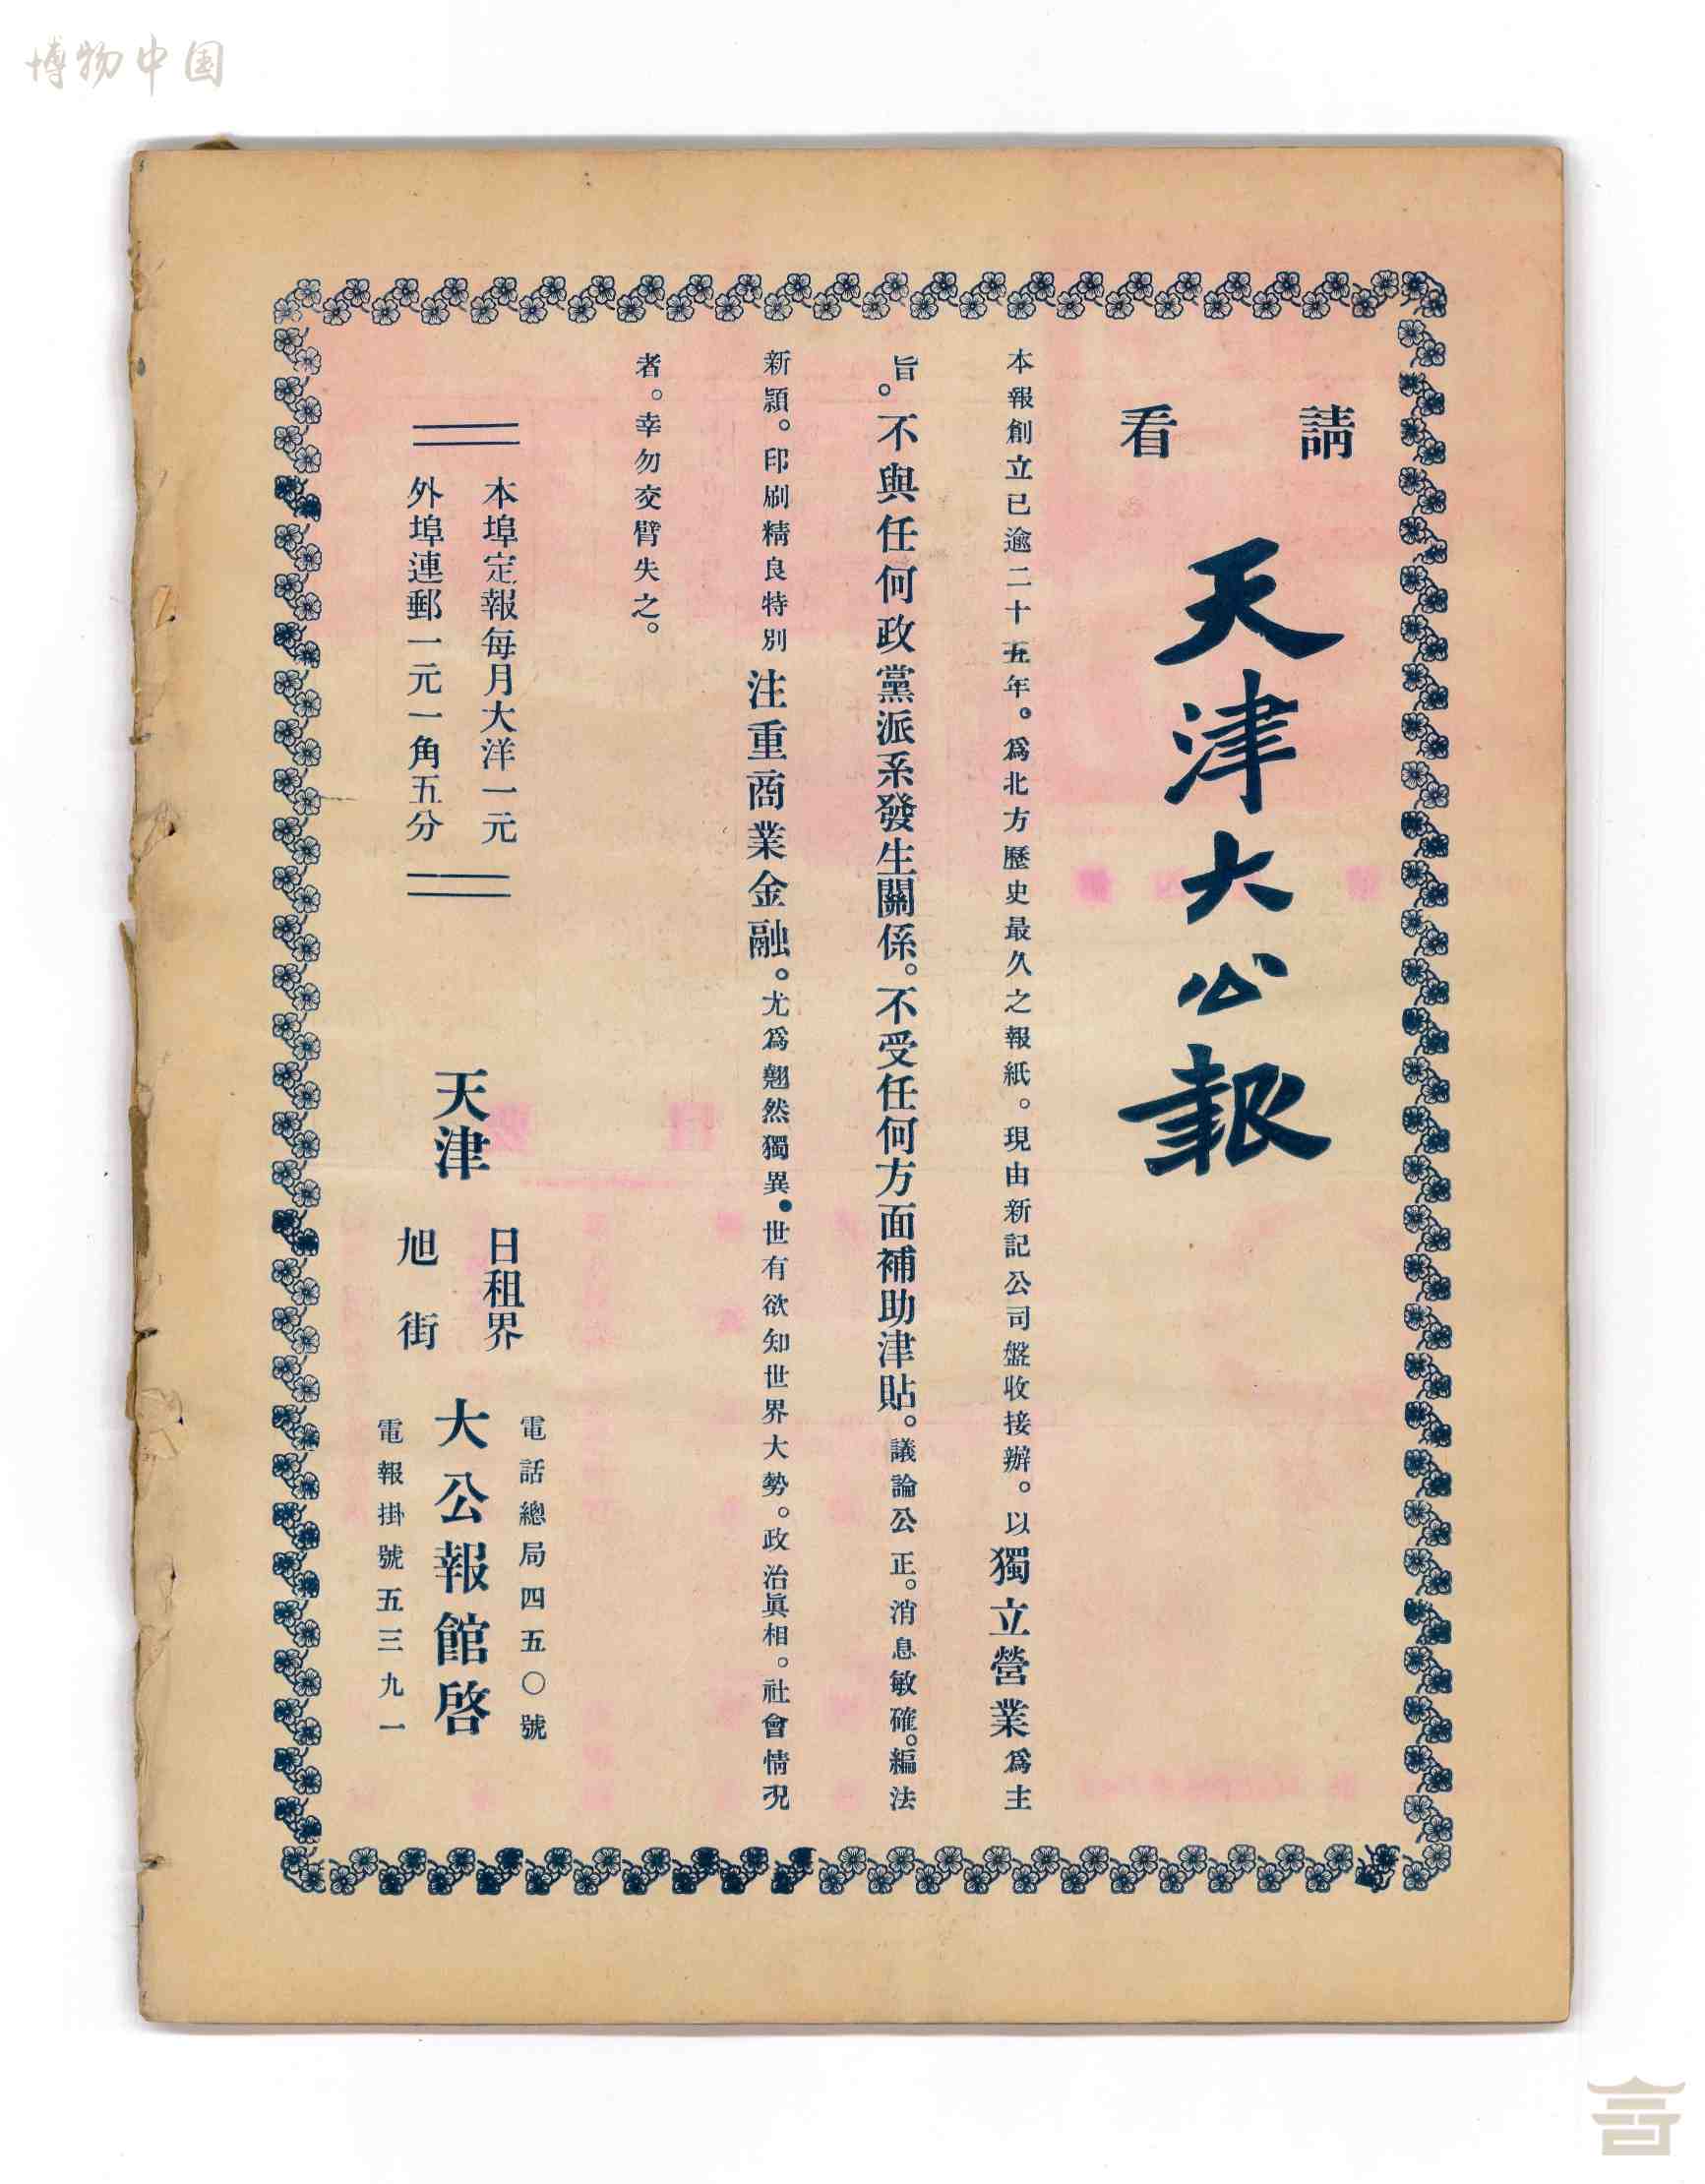 博物中国
請看
天津大公報
本報創立已逾二十五年。爲北方歷史最久之報紙。現由新記公司盤收接辦。以獨立營業爲主
旨。不與任何政黨派系發生關係。不受任何方面補助津貼。議論公正。消息敏確。編法
新穎。印刷精良特別注重商業金融。尤爲翹然獨異。世有欲知世界大勢。政治眞相。社會情況
者。幸勿交臂失之。
本埠定報每月大洋一元
外埠連郵一元一角五分
天津
日租界
旭街
電話總局四五〇號
大公報館啓
電報掛號五三九一